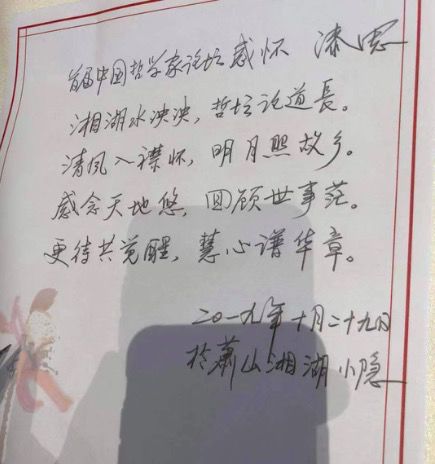 首届中国哲学家论坛感怀 漆思
湘湖水泱泱，哲坛论道長。
清风入襟怀，明月照故乡。
感念天地悠，回顾世事茫。
更待共觉醒，慧心谱华章。
二〇一九年十月二十九日
於萧山湘湖小隐